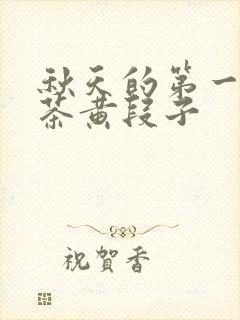 秋天的第一
茶黄段子
祝贺香